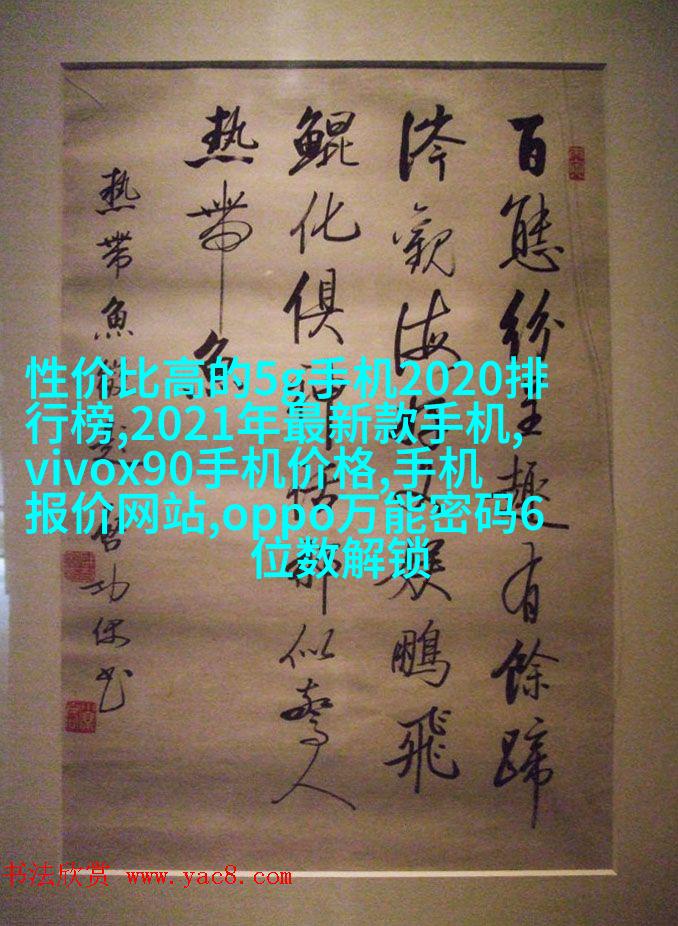 百態紛呈趣有餘蹄
涔觀海娱鵬飛
鯤化俱神話那似驚人
熱帶魚
熱帶魚啓功
性价比高的5g手机2020排
行榜,2021年最新款手机,
vivox90手机价格,手机
报价网站,oppo万能密码6
位数解锁
书法欣赏 www.yac8.com